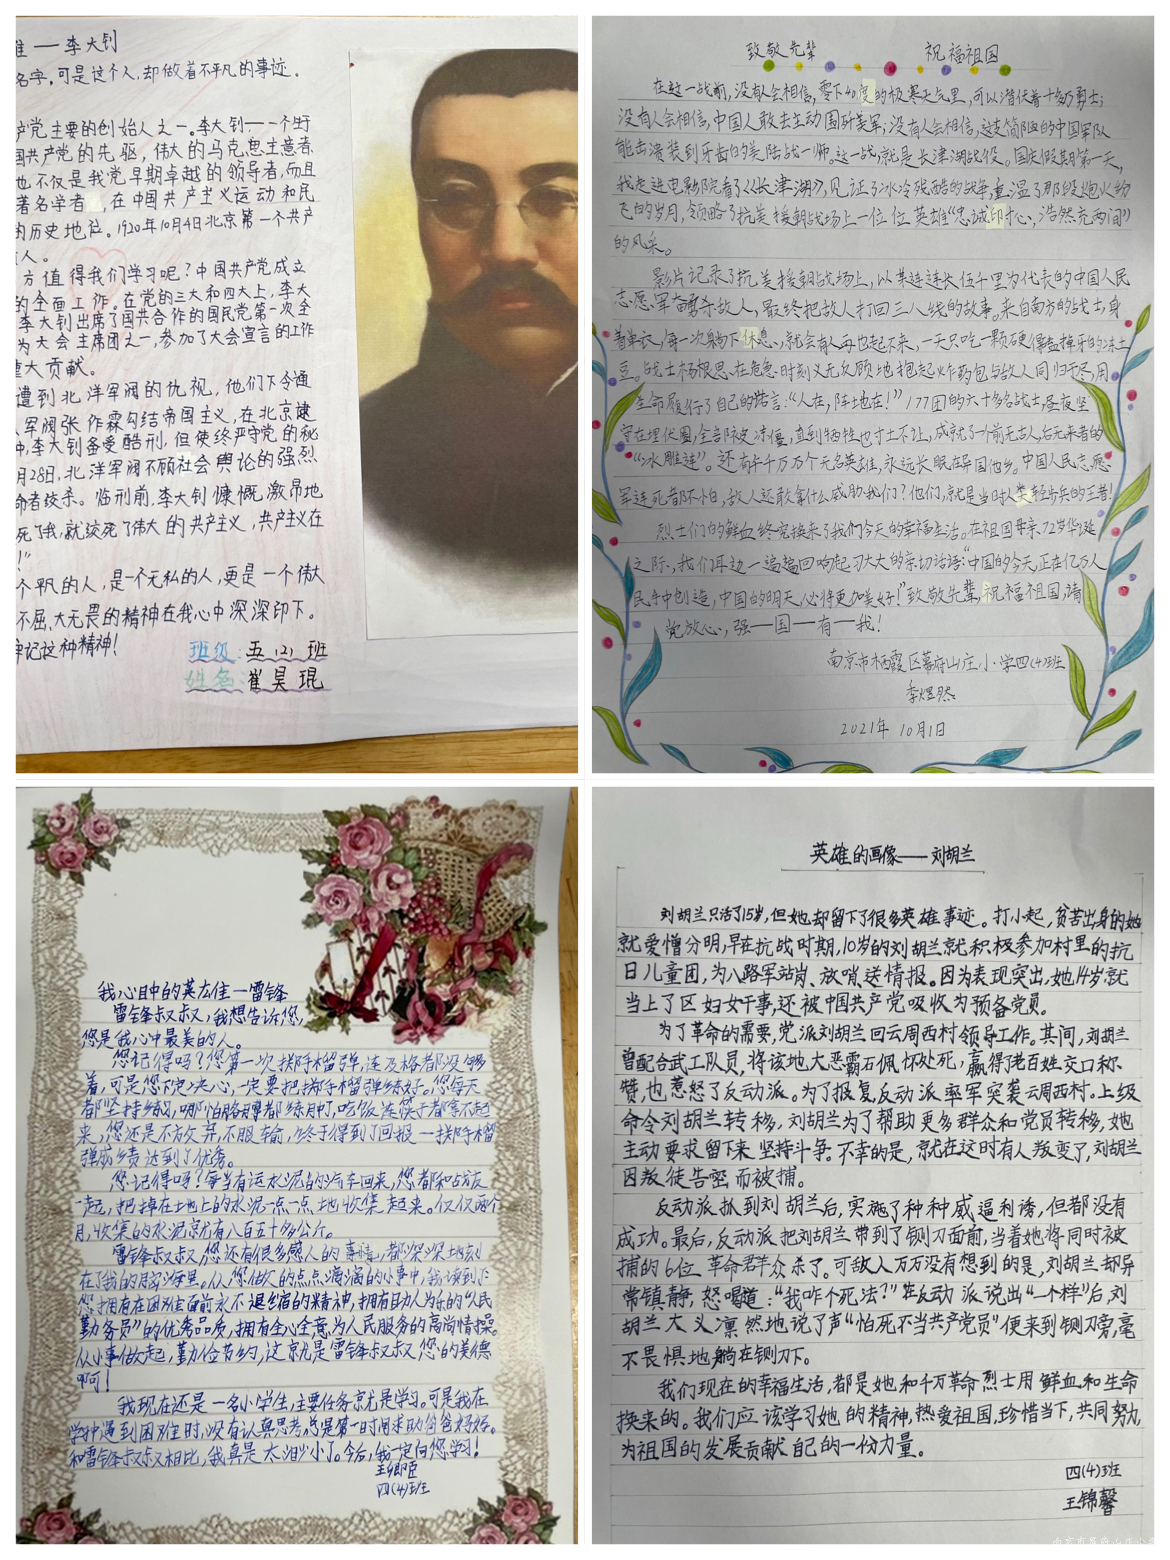 雄 — 李大钊
名字。可是这个人，却做着不平凡的事迹。
产党主要的创始人之一。李大钊——一个生于
国共产党的先驱，伟大的马克思主义者
也不仅是我党早期卓越的领导者，而且
著名学者，在中国共产主义运动和民
的历史地位。1920年10月4日北京第一个共产
人。
方值得我们学习呢？中国共产党成立
的全面工作。在党的三大和四大上，李大
李大钊出席了国共合作的国民党第一次全
为大会主席团之一，参加了大会宣言的工作
重大贡献。
遭到北洋军阀的仇视，他们下令通
军阀张作霖勾结帝国主义，在北京逮
中，李大钊备受酷刑，但始终严守党的秘
月28日，北洋军阀不顾社会舆论的强烈
命者绞杀。临刑前，李大钊慷慨激昂地
死了我，就绞死了伟大的共产主义，共产主义在
！”
个平凡的人，是一个无私的人，更是一个伟大
不屈、大无畏的精神在我心中深深印下。
牢记这种精神！
班级：五（2）班
姓名：崔昊琨
致敬先辈 祝福祖国
在这一战前，没有人会相信，零下40度的极寒天气里，可以潜伏着十多万勇士；
没有人会相信，中国人敢去主动围歼美军；没有人会相信，这支简陋的中国军队
能击溃装到牙齿的美陆战一师。这一战，就是长津湖战役。国庆假期第一天，
我走进电影院看了《长津湖》，见证了冰冷残酷的战争，重温了那段炮火纷
飞的岁月，领略了抗美援朝战场上一位位英雄“忠诚印寸心，浩然充两间”
的风采。
影片记录了抗美援朝战场上，以某连连长伍千里为代表的中国人民
志愿军奋勇杀敌人，最终把敌人打回三八线的故事。来自南方的战士，身
着单衣，每一次躺下休息，就会有人再也起不来，一天只吃一颗硬得能掉牙的冻土
豆。战士杨根思在危急时刻义无反顾地抱起炸药包与敌人同归于尽，用
生命履行了自己的诺言：“人在，阵地在！”177团的六十多名战士，昼夜坚
守在埋伏圈，全部被冻僵，直到牺牲也寸土不让，成就了前无古人，后无来者的
“冰雕连”。还有千千万万个无名英雄，永远长眠在异国他乡。中国人民志愿
军连死都不怕，故人还敢拿什么威胁我们？他们，就是当时人类轻步兵的王者！
烈士们的鲜血终究换来了我们今天的幸福生活。在祖国母亲72岁华诞
之际，我们耳边一遍遍回响起习大大的亲切话语：“中国的今天，正在亿万人
民手中创造，中国的明天，必将更加美好！”致敬先辈，祝福祖国，请
党放心，强—国—有—我！
南京市栖霞区幕府山庄小学四（4）班
李煜然
2021年10月1日
我心目中的英雄—雷锋
雷锋叔叔，我想告诉您，
您是我心中最美的人。
您记得吗？您第一次投手榴弹，连及格都没够
着，可是您下定决心，一定要把掷手榴弹练好。您每天
都坚持练习，哪怕胳膊都练肿了，吃饭连筷子都拿不起
来，您还是不放弃，不服输，终于得到了回报—投手榴
弹成绩达到了优秀。
您记得吗？每当有运水泥的汽车回来，您都和战友
一起，把掉在土地上的水泥一点一点地收集起来。仅仅两个
月，收集的水泥就有八百五十多公斤。
雷锋叔叔，您还有很多感人的事情，都深深地刻
在了我的脑海里。从您做人的点点滴滴的小事中，我读到了
您拥有在困难面前永不退缩的精神，拥有助人为乐的“人民
勤务员”的优秀品质，拥有全心全意为人民服务的高尚情操。
从小事做起，勤俭节约，这就是雷锋叔叔，您的美德
啊！
我现在还是一名小学生，主要任务就是学习。可是我在
学中遇到困难时，没有认真思考，总是第一时间求助爸爸妈妈。
和雷锋叔叔相比，我真是太渺小了。今后，我一定向您学习！
王卿臣
四（4）班
英雄的画像——刘胡兰
刘胡兰只活了15岁，但她却留下了很多英雄事迹。打小起，贫苦出身的她
就爱憎分明，早在抗战时期，10岁的刘胡兰就积极参加村里的抗
日儿童团，为八路军站岗、放哨、送情报。因为表现突出，她14岁就
当上了区妇女干事，还被中国共产党吸收为预备党员。
为了革命的需要，党派刘胡兰回云周西村领导工作。其间，刘胡兰
曾配合武工队员，将该地大恶霸石佩怀处死，赢得老百姓交口称
赞，也惹怒了反动派。为了报复，反动派率军突袭云周西村。上级
命令刘胡兰转移，刘胡兰为了帮助更多群众和党员转移，她
主动要求留下来坚持斗争。不幸的是，就在这时有人叛变了，刘胡兰
因叛徒告密而被捕。
反动派抓到刘胡兰后，实施了种种威逼利诱，但都没有
成功。最后，反动派把刘胡兰带到了铡刀面前，当着她将同时被
捕的6位革命群众杀了。可敌人万万没有想到的是，刘胡兰却异
常镇静，怒喝道：“我咋个死法？”在反动派说出“一个样”后，刘
胡兰大义凛然地说了声“怕死不当共产党员”便来到铡刀旁，毫
不畏惧地躺在铡刀下。
我们现在的幸福生活，都是她和千万革命烈士用鲜血和生命
换来的。我们应该学习她的精神，热爱祖国，珍惜当下，共同努力，
为祖国的发展贡献自己的一份力量。
四（4）班
王锦馨